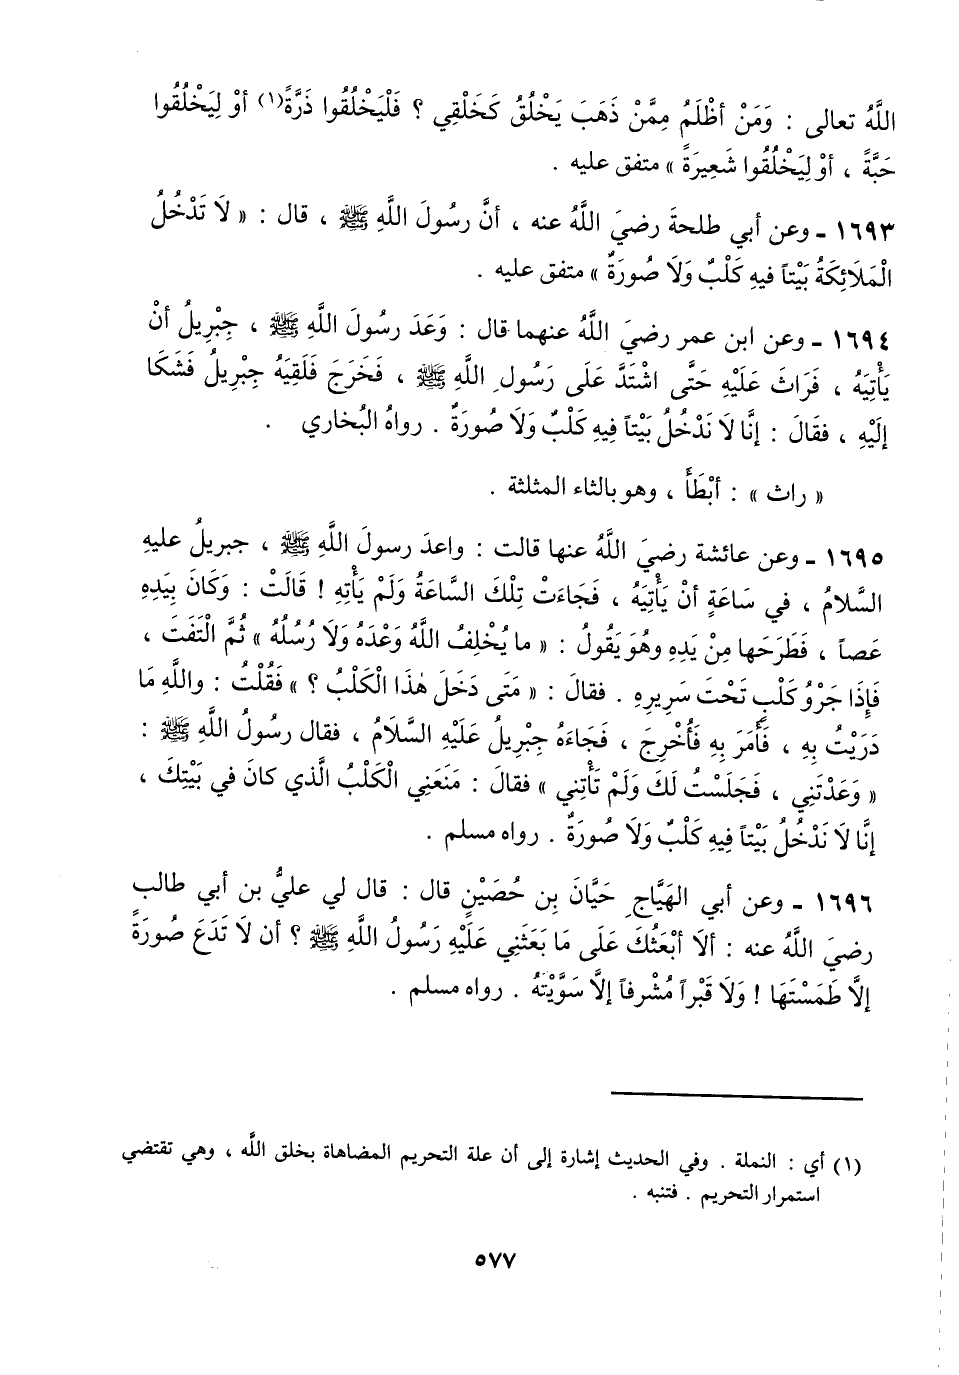 اللَّهُ تعالى : وَمَنْ أظْلَمُ مِمَّنْ ذَهَبَ يَخْلُقُ كَخَلْقِي ؟ فَلْيَخْلُقُوا ذَرَّةً(١) أوْ لِيَخْلُقُوا
حَبَّةً ، أوْ لِيَخْلُقُوا شَعِيرَةً » متفق عليه .
١٦٩٣ ـ وعن أبي طلحةَ رضيَ اللَّهُ عنه ، أنَّ رسُولَ اللَّهِ ﷺ ، قال : « لَا تَدْخُلُ
الْمَلَائِكَةُ بَيْتاً فيهِ كَلْبٌ وَلَا صُورَةٌ » متفق عليه .
١٦٩٤ ـ وعن ابن عمر رضيَ اللَّهُ عنهما قال : وَعَدَ رسُولَ اللَّهِ ﷺ ، جِبْرِيلُ أنْ
يَأْتِيَهُ ، فَرَاثَ عَلَيْهِ حَتَّى اشْتَدَّ عَلَى رَسُولِ اللَّهِ ﷺ ، فَخَرَجَ فَلَقِيَهُ جِبْرِيلُ فَشَكَا
إلَيْهِ ، فقَالَ : إنَّا لَا نَدْخُلُ بَيْتاً فيهِ كَلْبٌ وَلَا صُورَةٌ . رواهُ البُخاري .
« راث » : أبْطَأَ ، وهو بالثاء المثلثة .
١٦٩٥ ـ وعن عائشة رضيَ اللَّهُ عنها قالت : واعدَ رسولَ اللَّهِ ﷺ ، جبريلُ عليهِ
السَّلامُ ، في سَاعَةٍ أنْ يَأْتِيَهُ ، فَجَاءَتْ تِلْكَ السَّاعَةُ وَلَمْ يَأْتِهِ ! قَالَتْ : وَكَانَ بِيَدِهِ
عَصاً ، فَطَرَحَها مِنْ يَدِهِ وهُوَ يَقُولُ : « ما يُخْلِفُ اللَّهُ وَعْدَهُ وَلَا رُسُلُهُ » ثُمَّ الْتَفَتَ ،
فَإِذَا جَرْوُ كَلْبٍ تَحْتَ سَرِيرِهِ . فقالَ : « مَتَى دَخَلَ هٰذَا الْكَلْبُ ؟ » فَقُلْتُ : واللَّهِ مَا
دَرَيْتُ بِهِ ، فَأَمَرَ بِهِ فَأُخْرِجَ ، فَجَاءَهُ جِبْرِيلُ عَلَيْهِ السَّلَامُ ، فقال رسُولُ اللَّهِ ﷺ :
« وَعَدْتَنِي ، فَجَلَسْتُ لَكَ وَلَمْ تَأْتِني » فقالَ : مَنَعَنِي الْكَلْبُ الَّذي كانَ في بَيْتِكَ ،
إنَّا لَا نَدْخُلُ بَيْتاً فِيهِ كَلْبٌ وَلَا صُورَةٌ . رواه مسلم .
١٦٩٦ ـ وعن أبي الهَيَّاجِ حَيَّانَ بنِ حُصَيْنٍ قال : قال لي عليُّ بن أبي طالب
رضيَ اللَّهُ عنه : ألَا أبْعَثُكَ عَلَى مَا بَعَثَنِي عَلَيْهِ رَسُولُ اللَّهِ ﷺ ؟ أن لَا تَدَعَ صُورَةً
إلَّا طَمَسْتَهَا ! وَلَا قَبْراً مُشْرفاً إلَّا سَوَّيْتَهُ . رواه مسلم .
(١) أي : النملة . وفي الحديث إشارة إلى أن علة التحريم المضاهاة بخلق اللَّه ، وهي تقتضي
استمرار التحريم . فتنبه .
٥٧٧